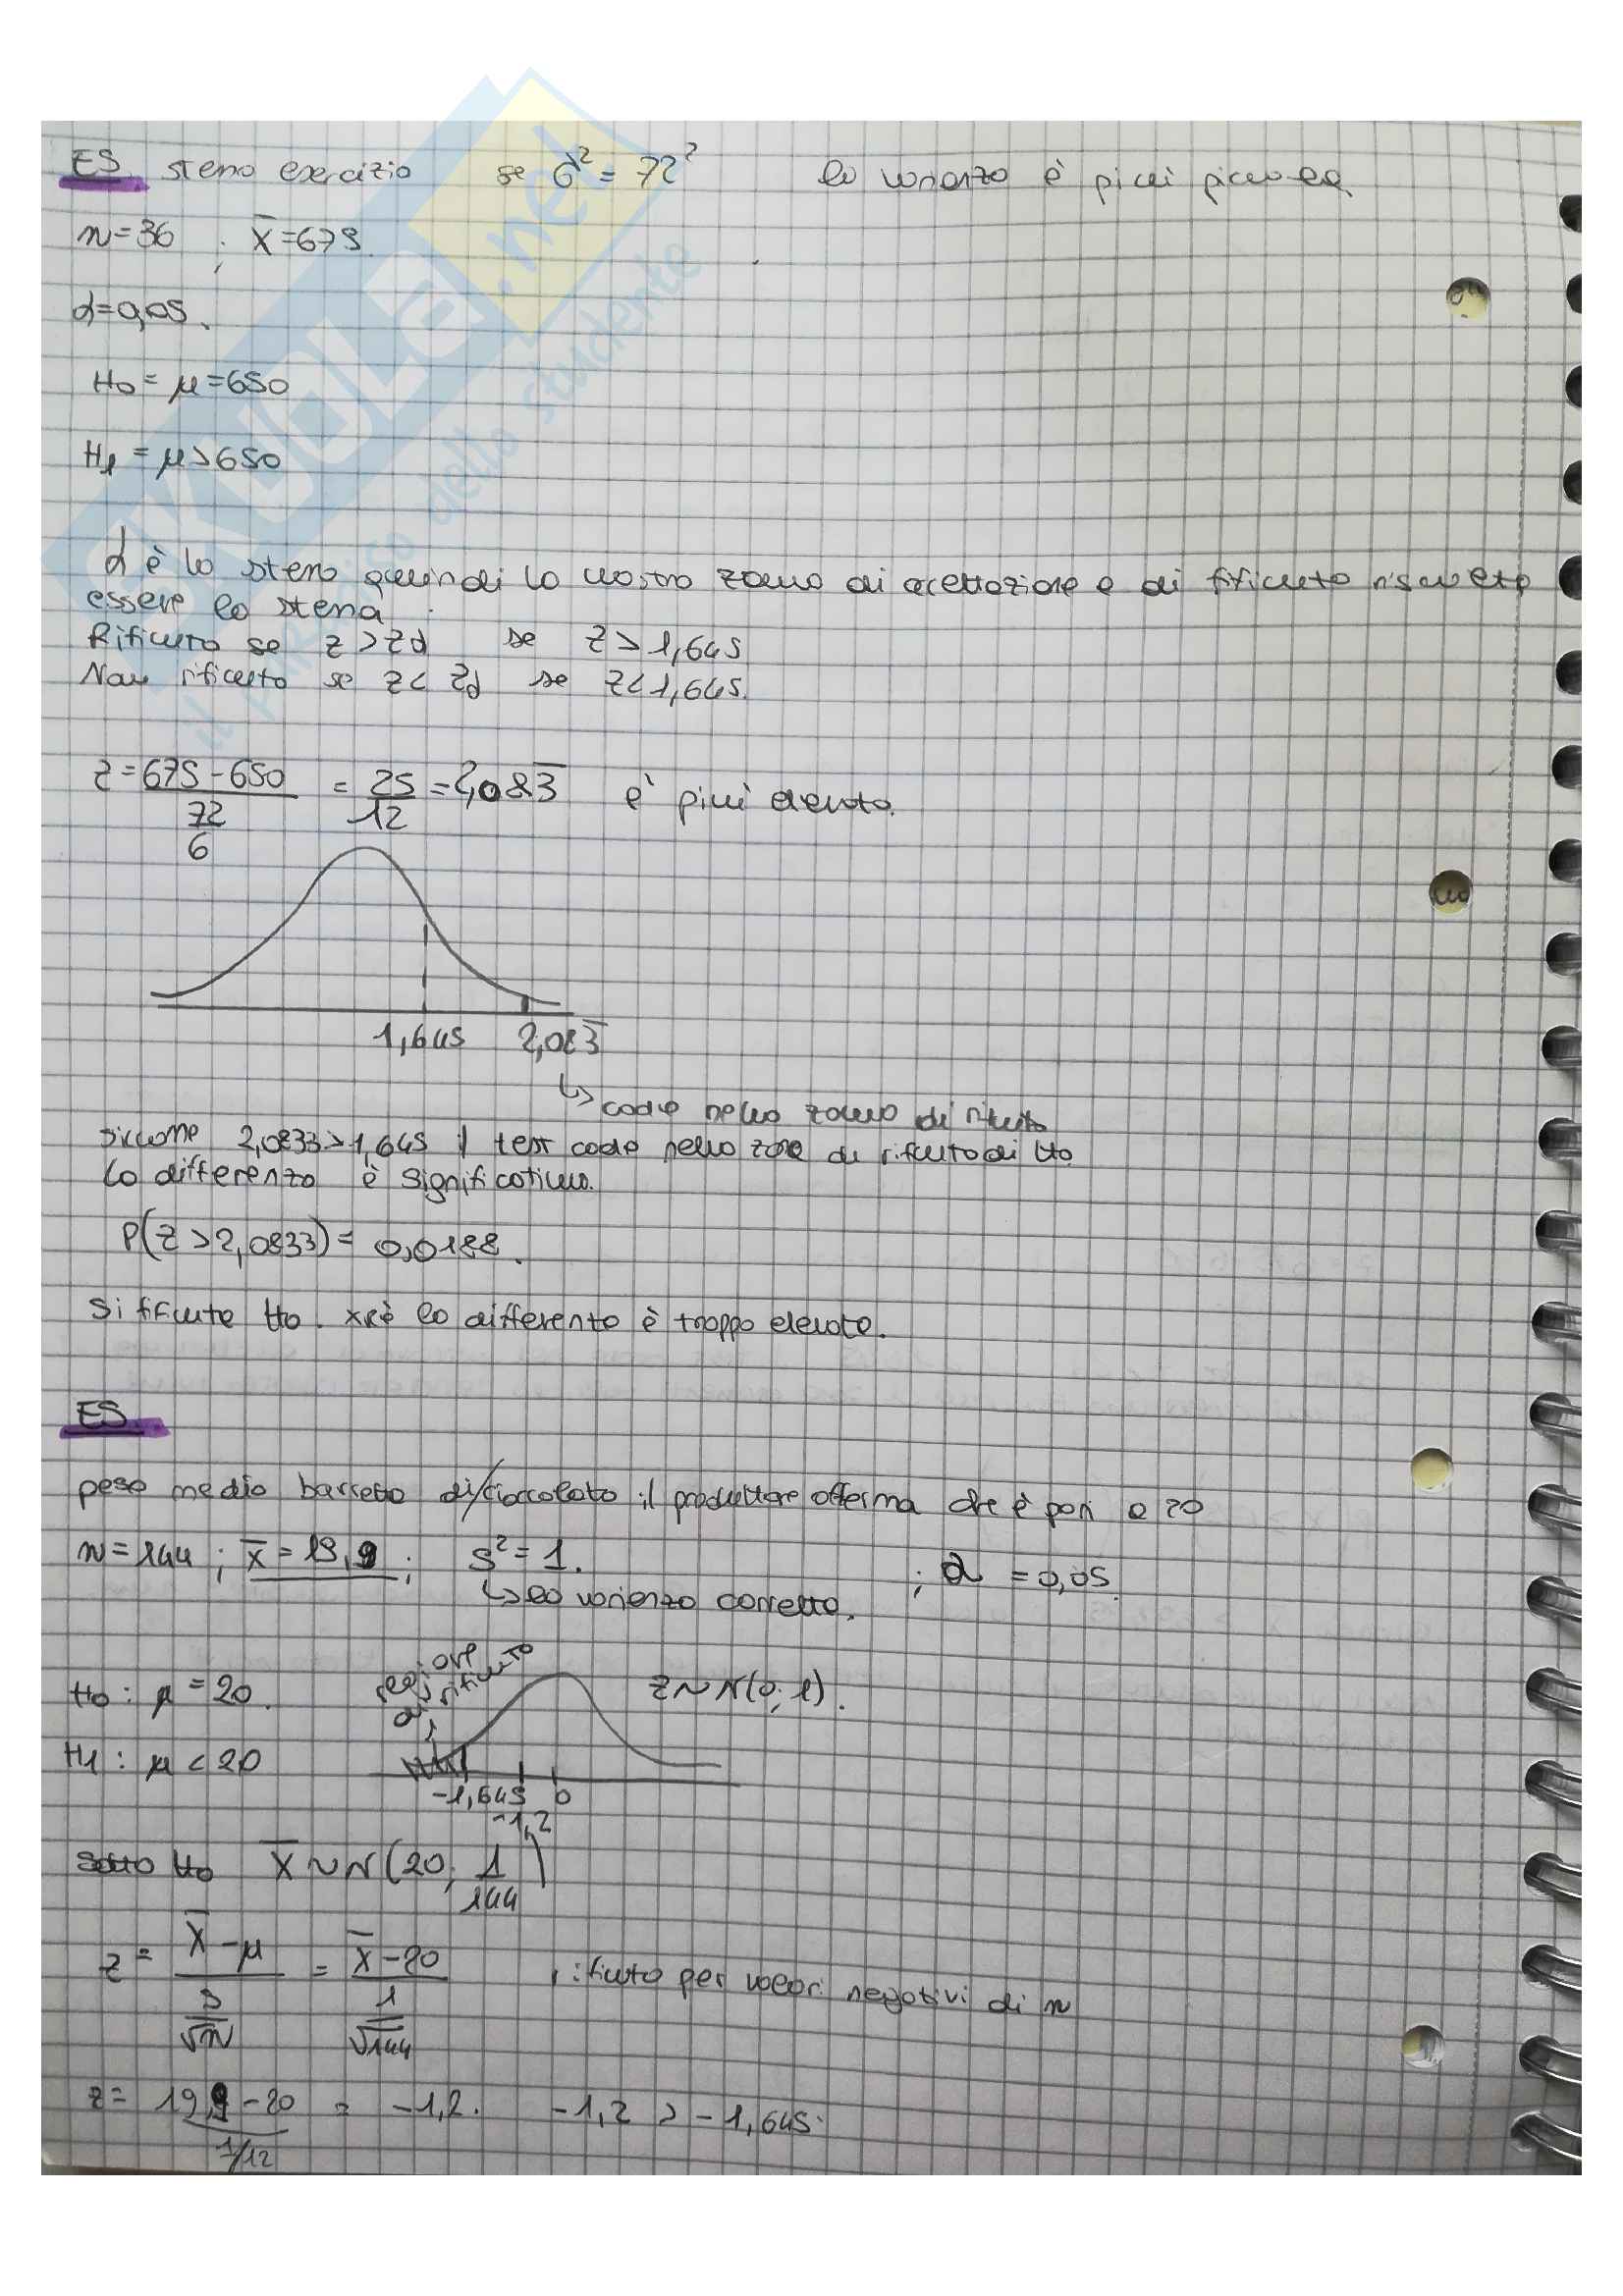 ES. stesso esercizio se σ² = 72² la varianza è più piccola
n=36 ; X̄=675.
α=0,05.
H₀ = μ=650
H₁ = μ>650
α è lo stesso quindi la nostra zona di accettazione e di rifiuto risulta
essere la stessa.
Rifiuto se z>zα se z>1,645
Non rifiuto se z< zα se z<1,645.
z = 675-650 / 72/6 = 25/12 = 2,083̅ è più elevato.
1,645 2,083̅
↳ cade nella zona di rifiuto
siccome 2,0833>1,645 il test cade nella zona di rifiuto di H₀
la differenza è significativa.
P(z>2,0833)= 0,0188.
Si rifiuta H₀. xkè la differenza è troppo elevata.
ES.
peso medio barretta di cioccolato il produttore afferma che è pari a 20
n=144 ; X̄=19,9 ; S²=1. ; α = 0,05.
↳ la varianza corretta.
regione di rifiuto
H₀: μ=20. z∼N(0; 1).
H₁: μ<20
-1,645 0
-1,2
Sotto H₀ X̄∼N(20; 1/144)
z = X̄-μ / S/√n = X̄-20 / 1/√144 rifiuto per valori negativi di n
z= 19,9-20 / 1/12 = -1,2. -1,2 > -1,645.
SKUOLA.net
il paradiso dello studente